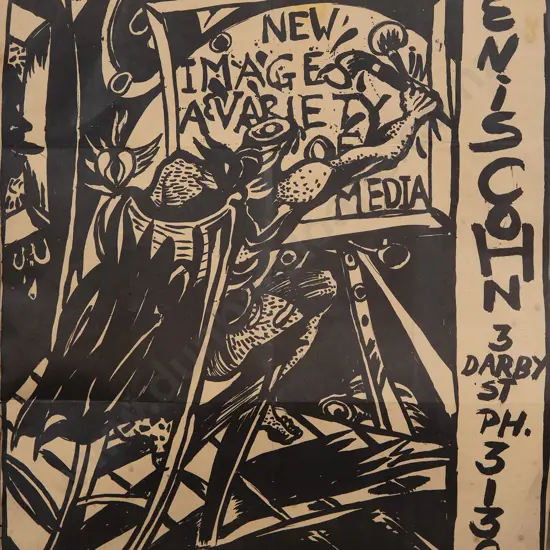 NEW
IMAGES
A VARIETY
OF
MEDIA
ENISCOHN
3
DARBY
ST
PH.
3-13